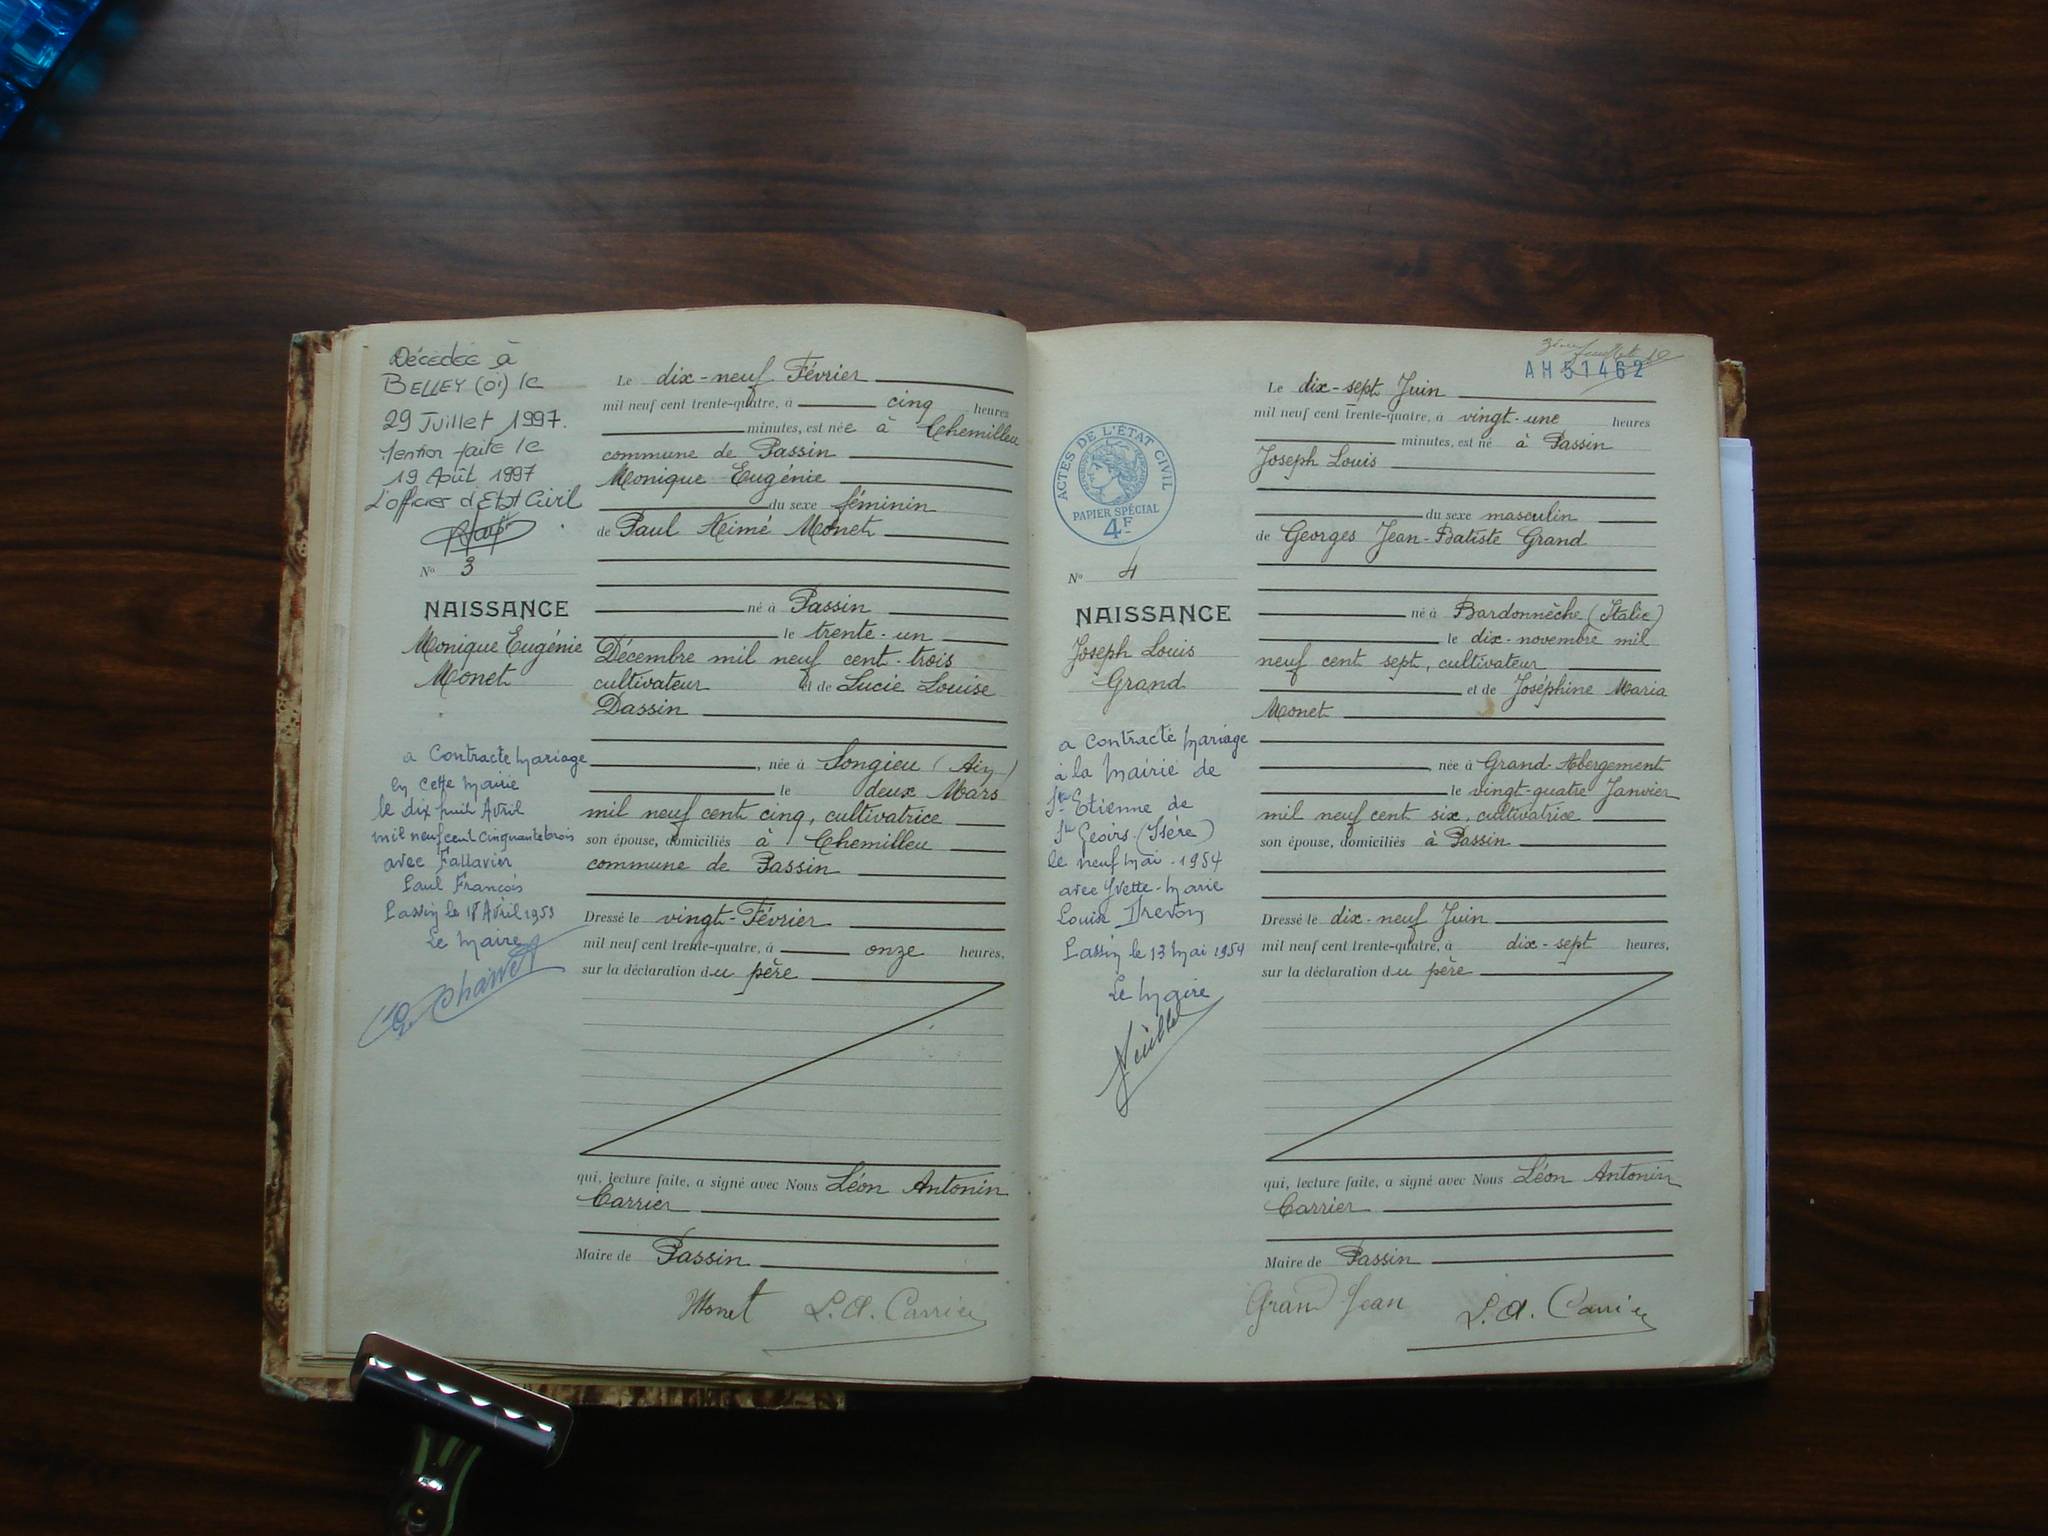 Décédée à
BELLEY (01) le
29 Juillet 1997.
Mention faite le
19 Août 1997
L'officier d'Etat Civil
N° 3
NAISSANCE
Monique Eugénie
Monet
a contracté mariage
en cette mairie
le dix huit Avril
mil neuf cent cinquante trois
avec Fallavier
Paul François
Passin le 18 Avril 1953
Le Maire
Le dix-neuf Février
mil neuf cent trente-quatre, à cinq heures
minutes, est née à Chemilleu
commune de Passin
Monique Eugénie
du sexe féminin
de Paul Aimé Monet
né à Passin
le trente-un
Décembre mil neuf cent-trois
cultivateur et de Lucie Louise
Dassin
, née à Songieu (Ain)
le deux Mars
mil neuf cent cinq, cultivatrice
son épouse, domiciliés à Chemilleu
commune de Passin
Dressé le vingt-Février
mil neuf cent trente-quatre, à onze heures,
sur la déclaration du père
qui, lecture faite, a signé avec Nous Léon Antonin
Carrier
Maire de Passin
Monet L. A. Carrier
AH 51462
ACTES DE L'ÉTAT CIVIL
PAPIER SPÉCIAL
4F
N° 4
NAISSANCE
Joseph Louis
Grand
a contracté mariage
à la mairie de
St Etienne de
St Geoirs (Isère)
le neuf mai 1954
avec Yvette-Marie
Louise Drevon
Passin le 13 mai 1954
Le Maire
Le dix-sept Juin
mil neuf cent trente-quatre, à vingt-une heures
minutes, est né à Passin
Joseph Louis
du sexe masculin
de Georges Jean-Batiste Grand
né à Bardonnèche (Italie)
le dix-novembre mil
neuf cent sept, cultivateur
et de Joséphine Maria
Monet
née à Grand-Abergement
le vingt-quatre Janvier
mil neuf cent six, cultivatrice
son épouse, domiciliés à Passin
Dressé le dix-neuf Juin
mil neuf cent trente-quatre, à dix-sept heures,
sur la déclaration du père
qui, lecture faite, a signé avec Nous Léon Antonin
Carrier
Maire de Passin
Grand Jean L. A. Carrier